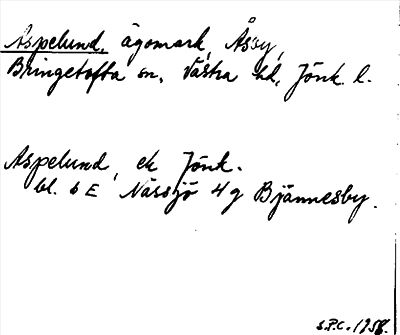 Aspelund, ägomark, Åsby,
Bringetofta sn, Västra hd, Jönk. l.
Aspelund, ek Jönk.
bl. 6 E Nässjö 4 g Bjännesby.
S.P.C. 1958.